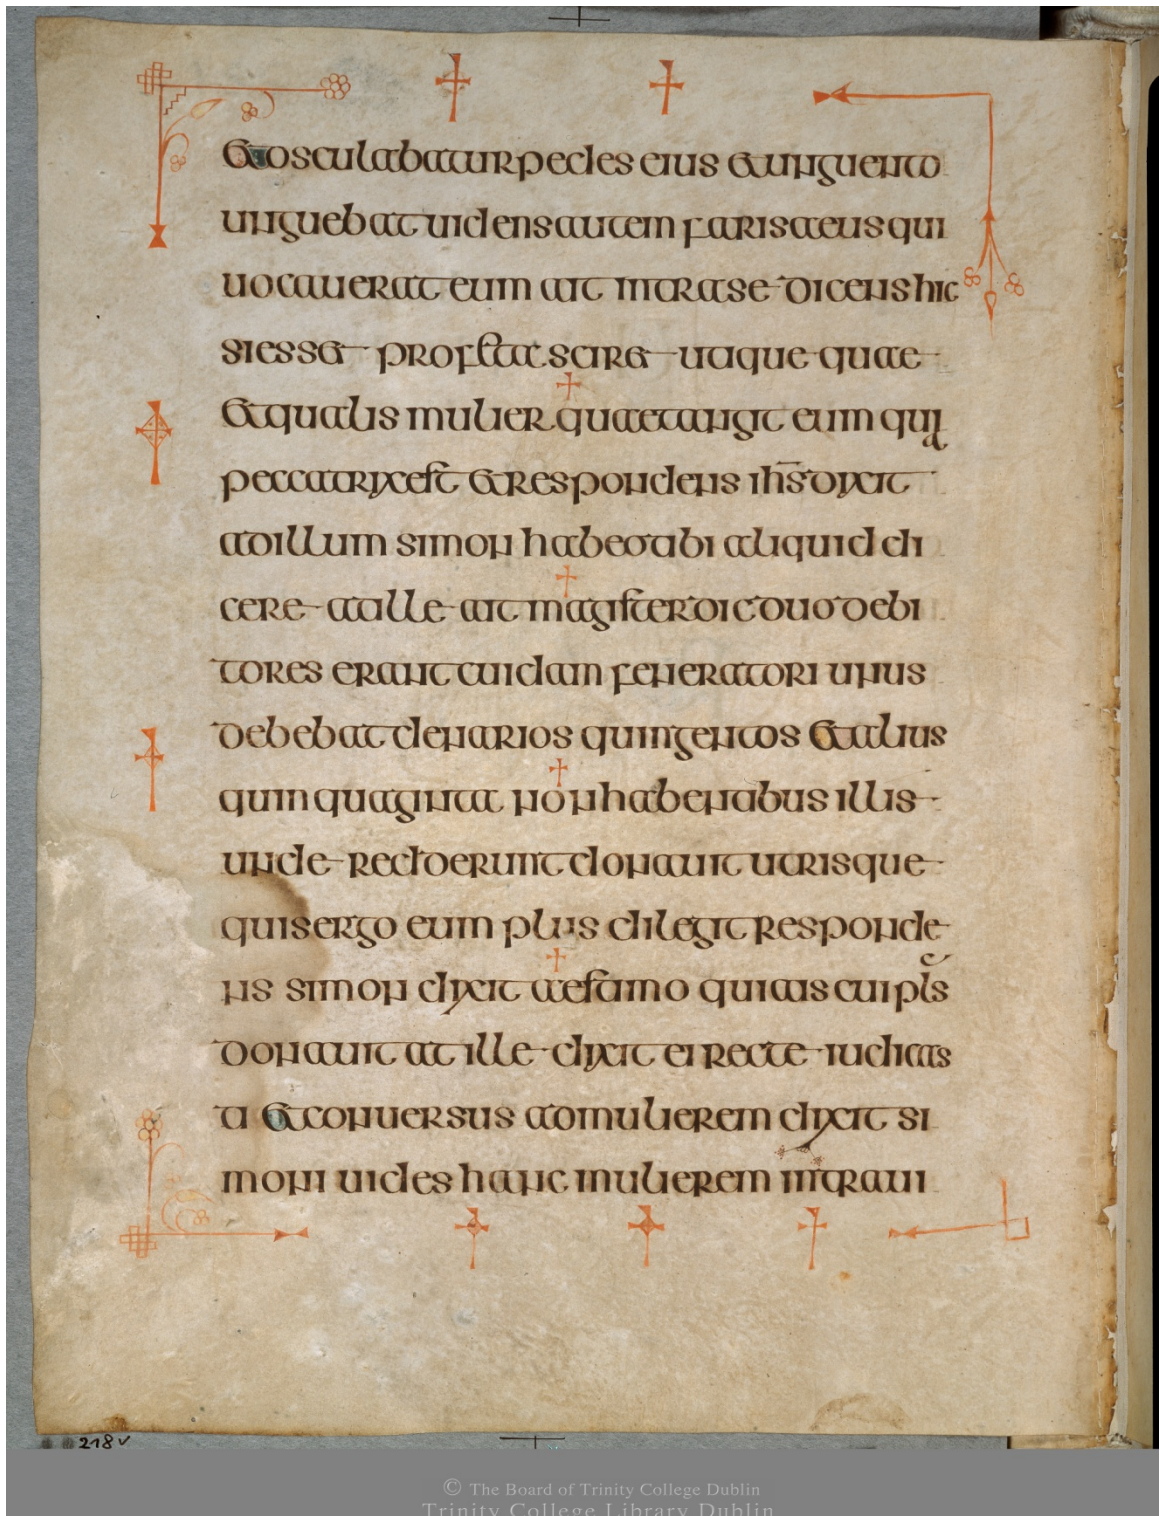 et osculabatur pedes eius et unguento
unguebat uidens autem fariseus qui
uocauerat eum ait intra se dicens hic
si esset profeta sciret utique quae
et qualis mulier quae tangit eum qui
peccatrix est et respondens ihs dixit
ad illum simon habeo tibi aliquid di
cere at ille ait magister dic duo debi
tores erant cuidam feneratori unus
debebat denarios quingentos et alius
quinquaginta non habentibus illis
unde redderunt donauit utrisque
quis ergo eum plus dilegit responde
ns simon dixit aestimo quia is cui pls
donauit at ille dixit ei recte iudicas
ti et conuersus ad mulierem dixit si
moni uides hanc mulierem intraui
218v
© The Board of Trinity College Dublin
Trinity College Library Dublin